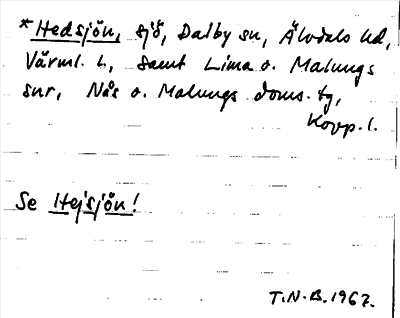 *Hedsjön, sjö, Dalby sn, Älvdals hd,
Värml. l., samt Lima o. Malungs
snr, Nås o. Malungs doms. tg,
Kopp. l.
Se Hejsjön!
T.N.B. 1967.